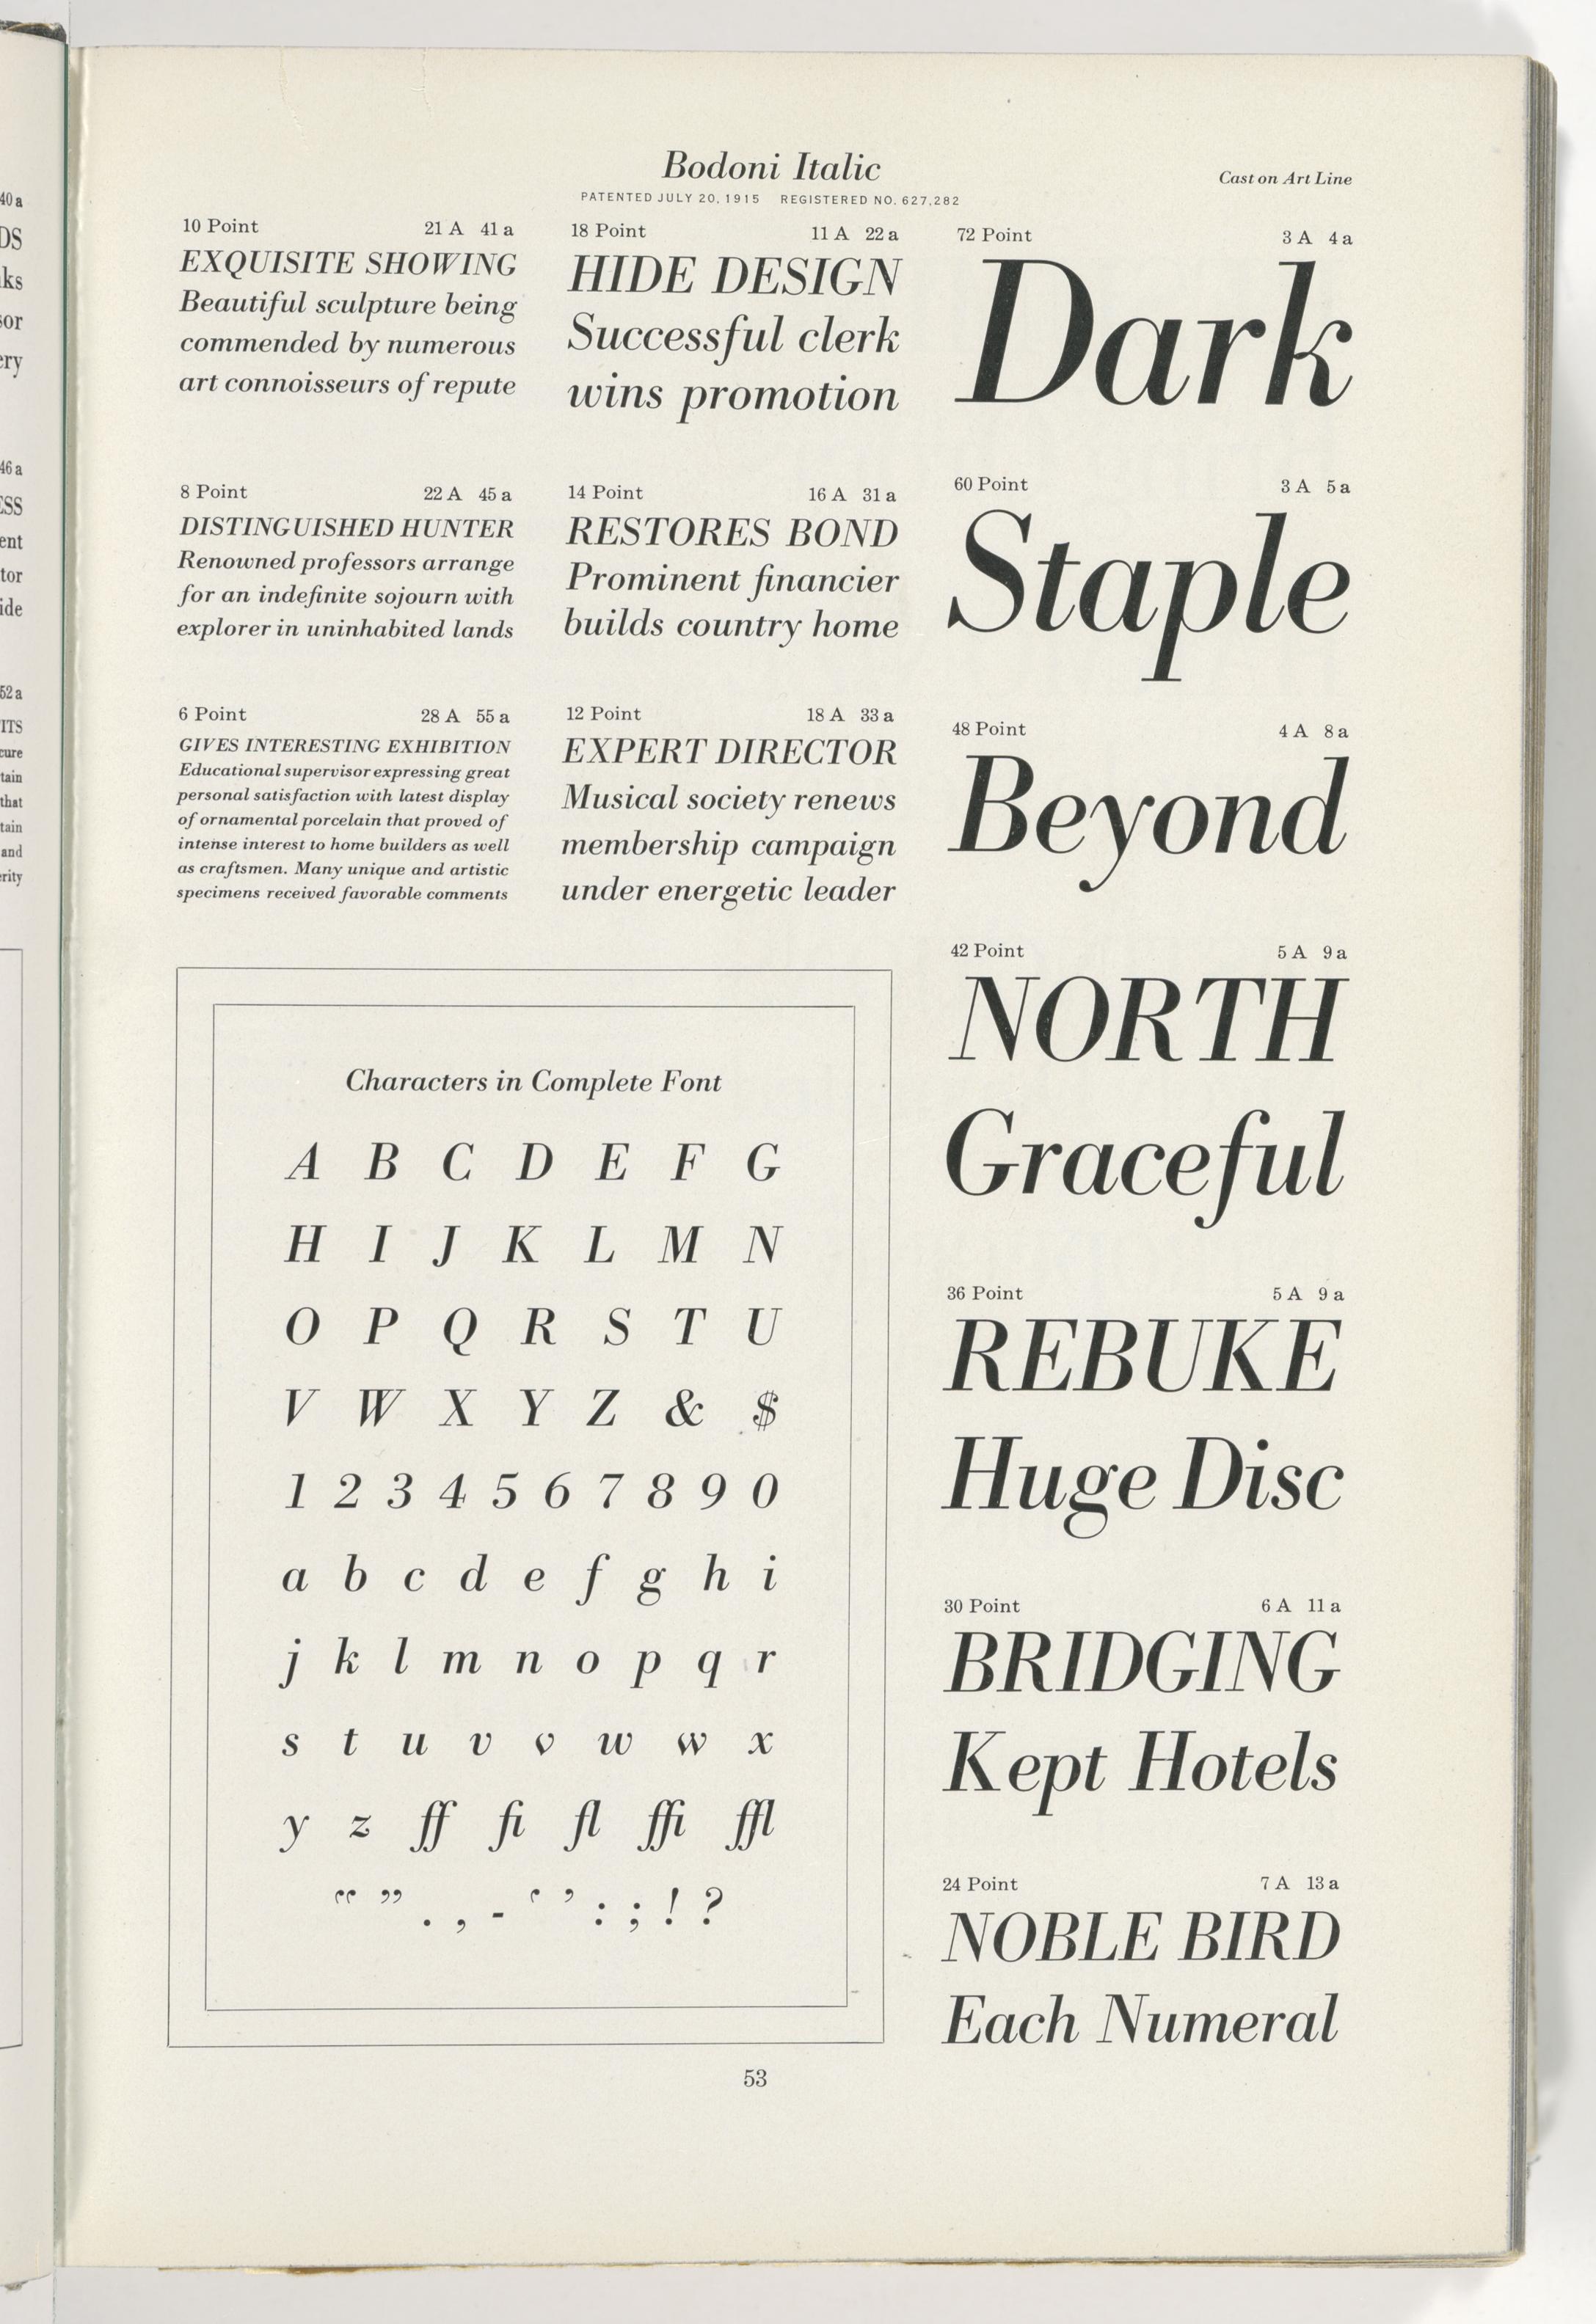 Bodoni Italic
Cast on Art Line
PATENTED JULY 20, 1915 REGISTERED NO. 627,282
10 Point 21 A 41 a
EXQUISITE SHOWING
Beautiful sculpture being
commended by numerous
art connoisseurs of repute
8 Point 22 A 45 a
DISTINGUISHED HUNTER
Renowned professors arrange
for an indefinite sojourn with
explorer in uninhabited lands
6 Point 28 A 55 a
GIVES INTERESTING EXHIBITION
Educational supervisor expressing great
personal satisfaction with latest display
of ornamental porcelain that proved of
intense interest to home builders as well
as craftsmen. Many unique and artistic
specimens received favorable comments
18 Point 11 A 22 a
HIDE DESIGN
Successful clerk
wins promotion
14 Point 16 A 31 a
RESTORES BOND
Prominent financier
builds country home
12 Point 18 A 33 a
EXPERT DIRECTOR
Musical society renews
membership campaign
under energetic leader
72 Point 3 A 4 a
Dark
60 Point 3 A 5 a
Staple
48 Point 4 A 8 a
Beyond
42 Point 5 A 9 a
NORTH
Graceful
36 Point 5 A 9 a
REBUKE
Huge Disc
30 Point 6 A 11 a
BRIDGING
Kept Hotels
24 Point 7 A 13 a
NOBLE BIRD
Each Numeral
Characters in Complete Font
A B C D E F G
H I J K L M N
O P Q R S T U
V W X Y Z & $
1 2 3 4 5 6 7 8 9 0
a b c d e f g h i
j k l m n o p q r
s t u v v w w x
y z ff fi fl ffi ffl
“ ” . , - ‘ ’ : ; ! ?
53
40 a
46 a
52 a
tain
that
tain
and